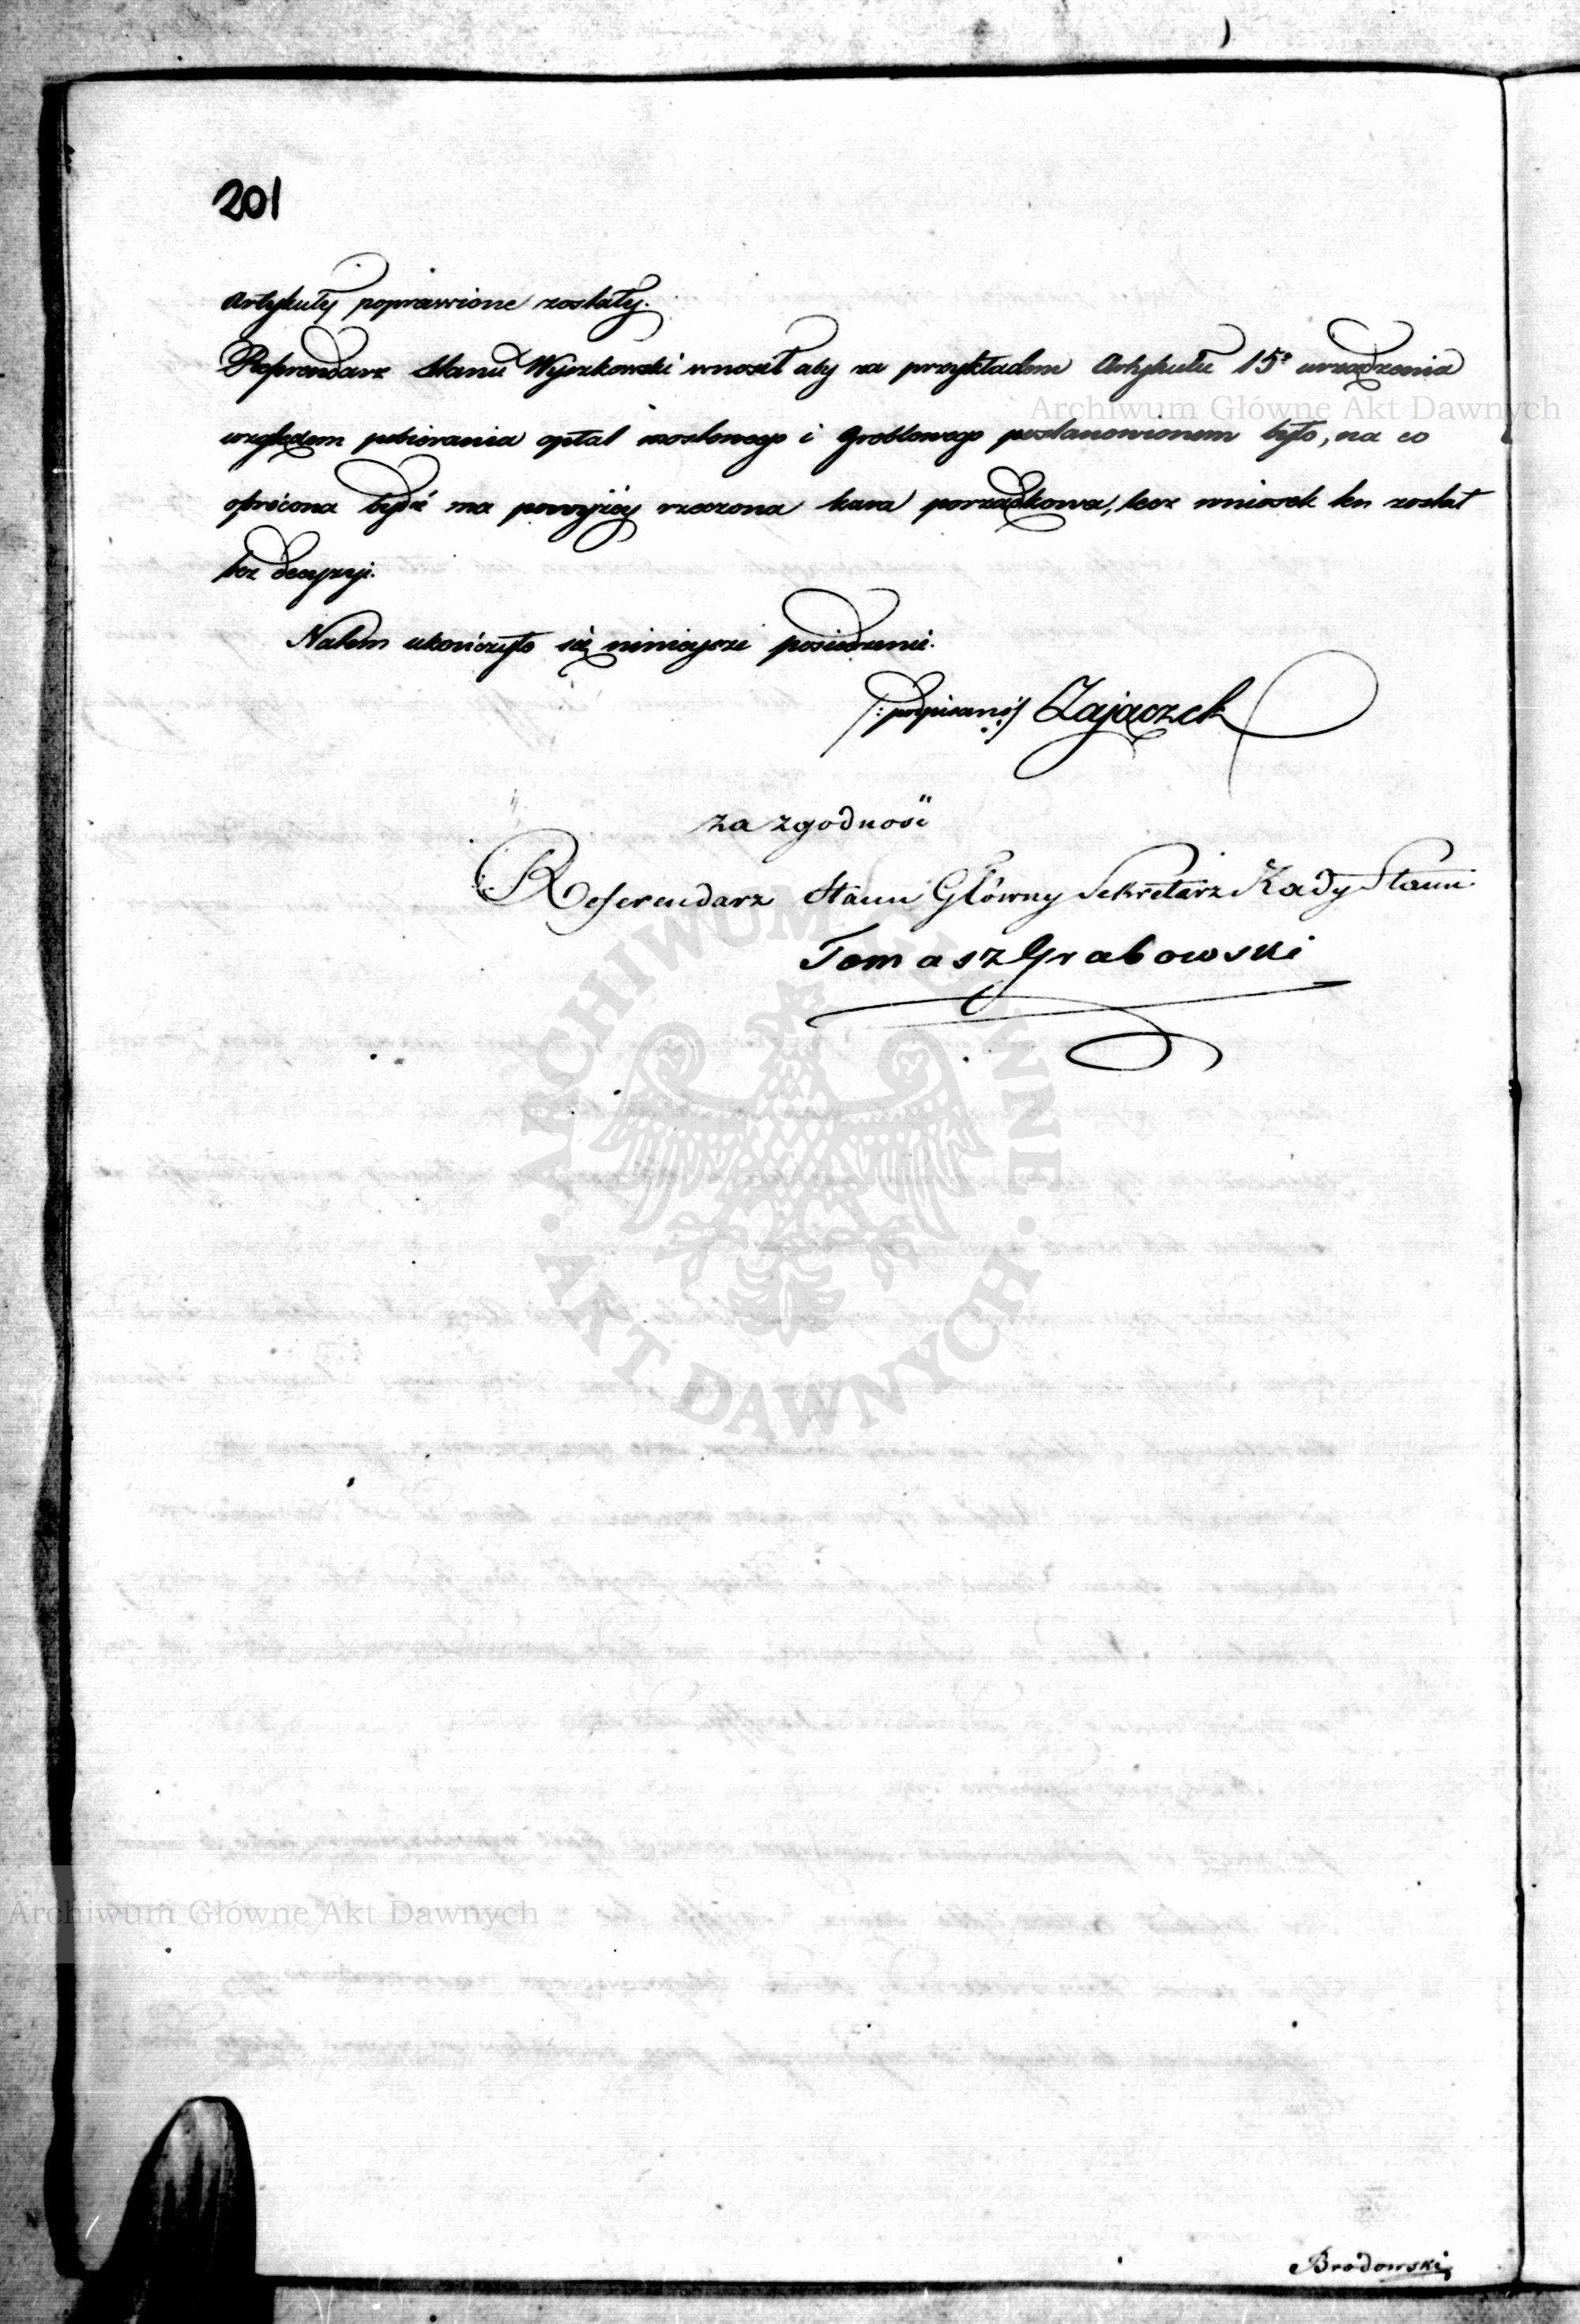 201
Artykuły poprawione zostały.
Referendarz Stanu Wyczkowski wnosił aby za przykładem Artykułu 15º urządzenia
względem pobierania opłat mostowego i Groblowego postanowionem było, na co
obrócona bydź ma powyżéy rzeczona kara porządkowa, lecz wniosek ten został
bez decyzyi.
Natem ukończyło się ninieysze posiedzenie.
/: podpisano :/ Zajączek
za zgodność
Referendarz Stanu Główny Sekretarz Rady Stanu
Tomasz Grabowski
Brodowski
Archiwum Główne Akt Dawnych
ARCHIWUM GŁÓWNE · AKT DAWNYCH ·
Archiwum Główne Akt Dawnych